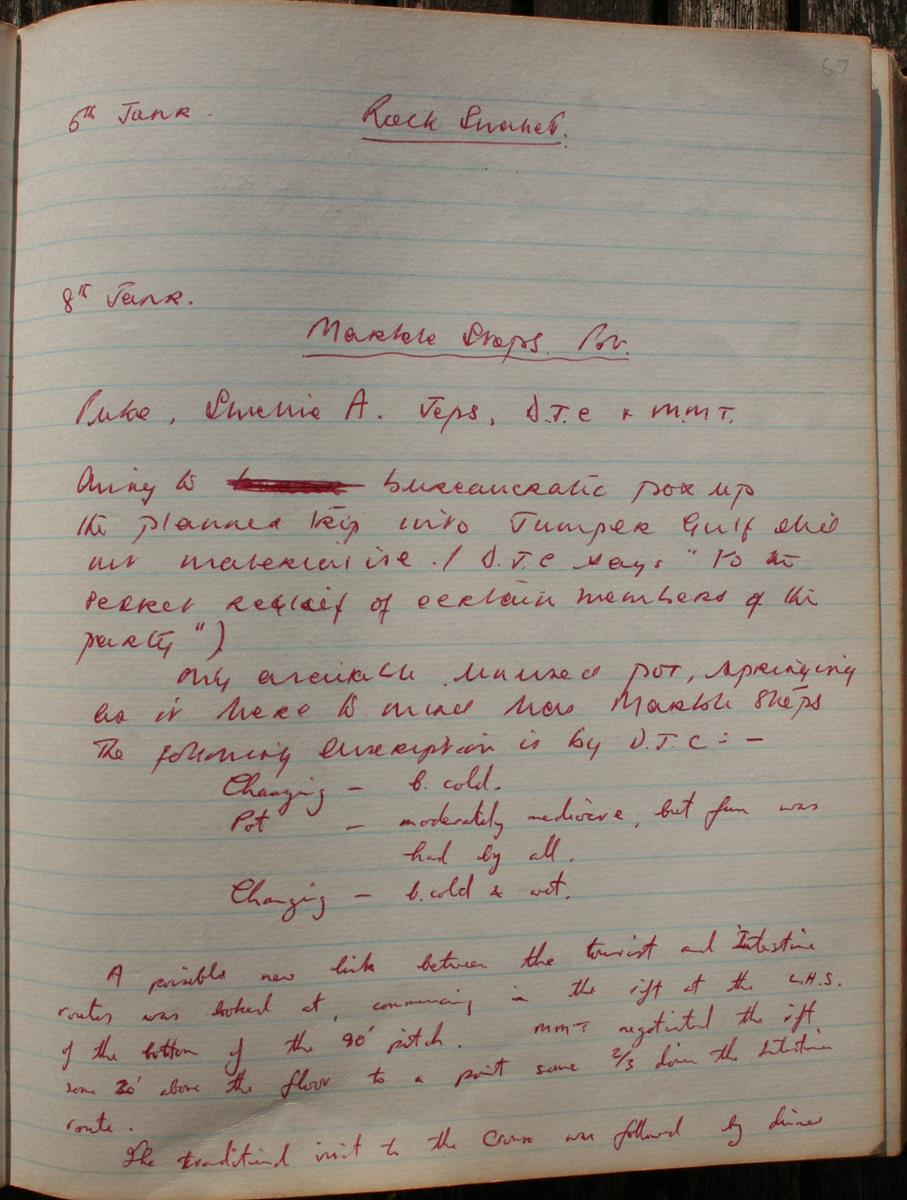 67
6th Janr. Rock Sunset.
8th Janr.
Marble Steps Pot.
Puke, A. Jeps, D.T.C & M.M.T.
Owing to bureaucratic pox up
the planned trip into Jumper Gulf did
not materialise. (D.T.C says "to the
secret relief of certain members of the
party")
Only available unused pot, springing
as it were to mind was Marble Steps
The following description is by D.T.C :-
Changing - b. cold.
Pot - moderately mediocre, but fun was
had by all.
Changing - b. cold & wet.
A possible new link between the tourist and Intestine
routes was looked at, commencing in the rift at the L.H.S.
of the bottom of the 90' pitch. MMT negotiated the rift
some 30' above the floor to a point some 2/3 down the Intestine
route.
The traditional visit to the Craven was followed by dinner